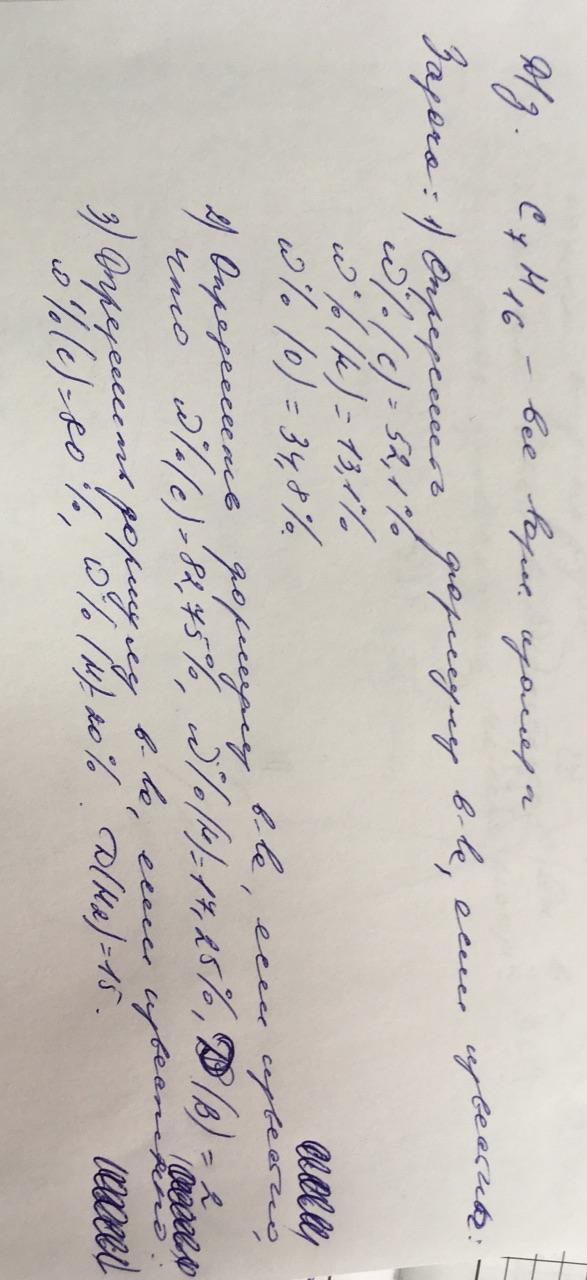 Д/з. C7H16 - все форм. изомера
Задача: 1) Определить формулу в-ва, если известны:
W% (C) = 52,1%
W% (H) = 13,1%
W% (O) = 34,8%.
2) Определить формулу в-ва, если известно,
что W% (C) = 82,75%, W% (H) = 17,25%, D(B) = 2
3) Определить формулу в-ва, если известно:
W% (C) = 80%, W% (H) = 20%. D(H2) = 15.